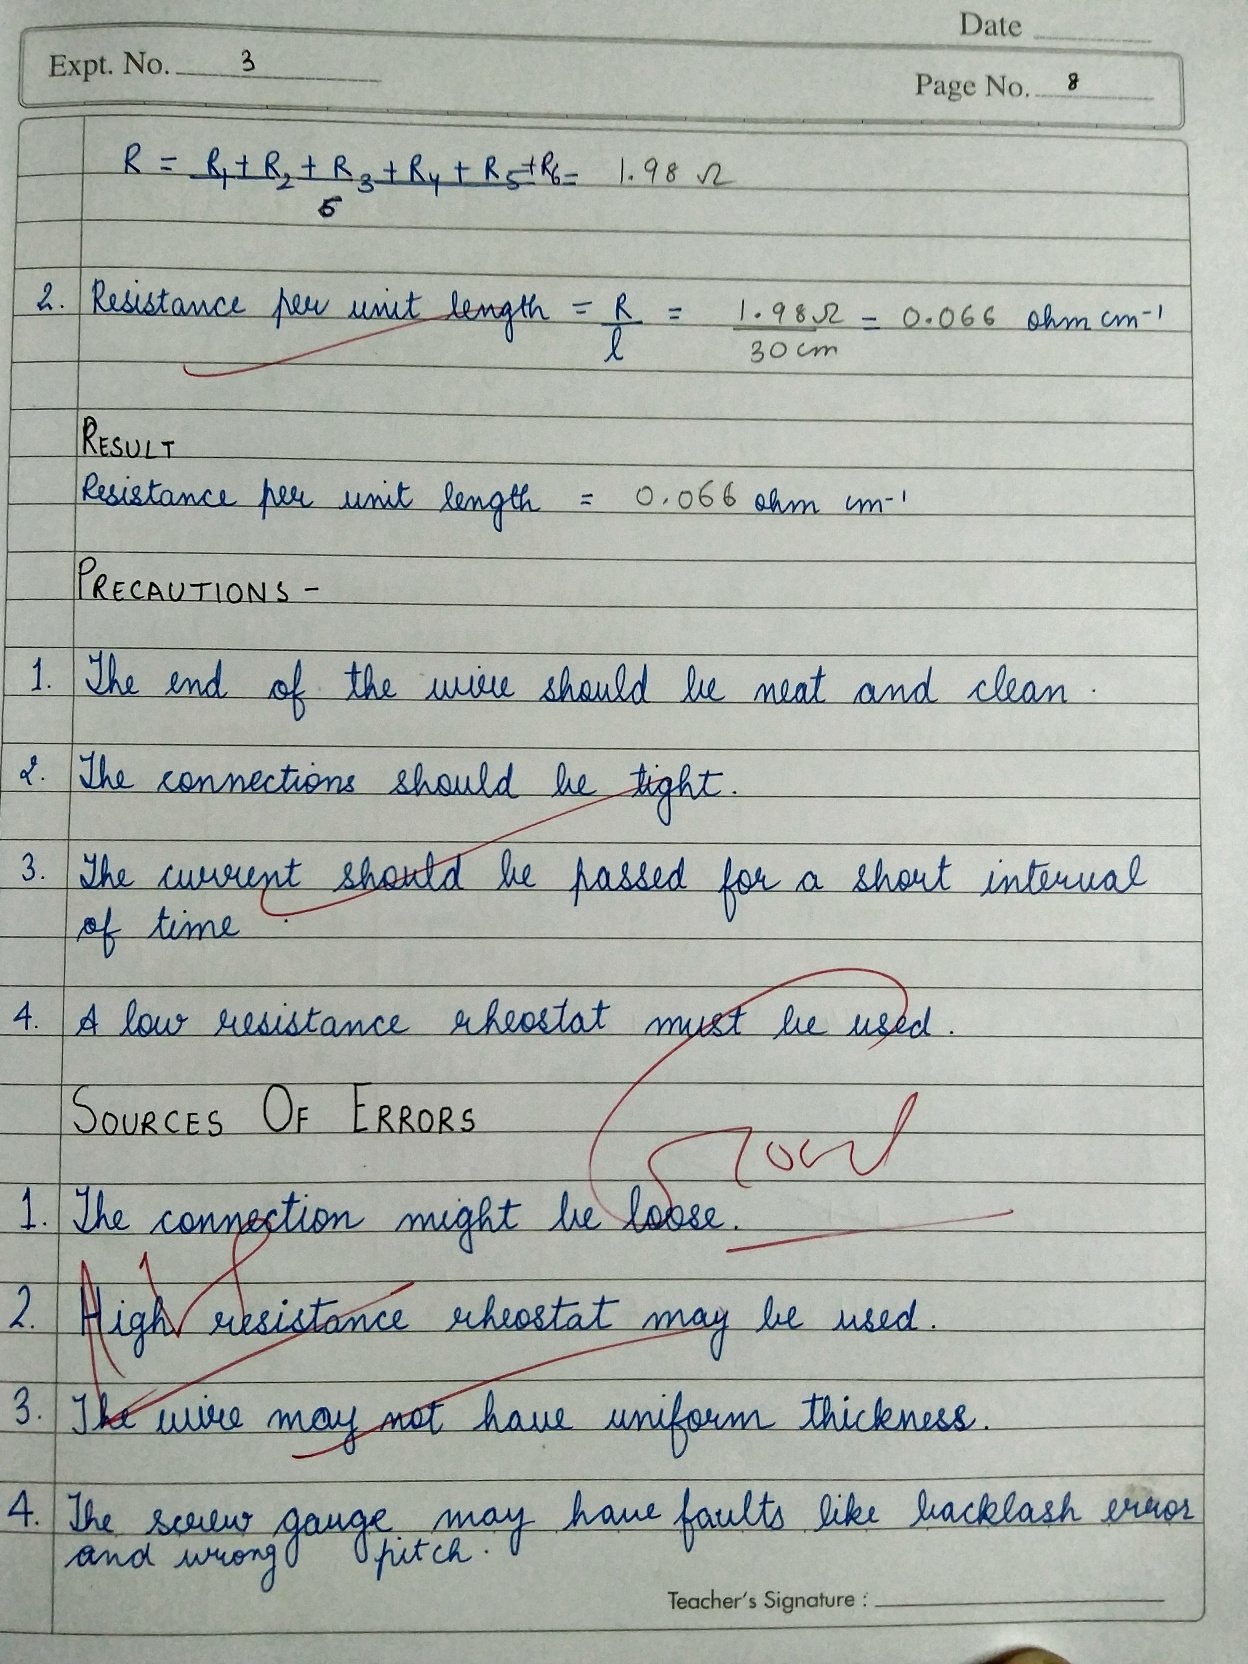 Date
Expt. No. 3
Page No. 8
R = R1 + R2 + R3 + R4 + R5 + R6 = 1.98 Ω
6
2. Resistance per unit length = R = 1.98 Ω = 0.066 ohm cm-1
l 30 cm
RESULT
Resistance per unit length = 0.066 ohm cm-1
PRECAUTIONS -
1. The end of the wire should be neat and clean.
2. The connections should be tight.
3. The current should be passed for a short interval
of time
4. A low resistance rheostat must be used.
SOURCES OF ERRORS
Good
1. The connection might be loose.
2. High resistance rheostat may be used.
3. The wire may not have uniform thickness.
4. The screw gauge may have faults like backlash error
and wrong pitch.
Teacher's Signature :